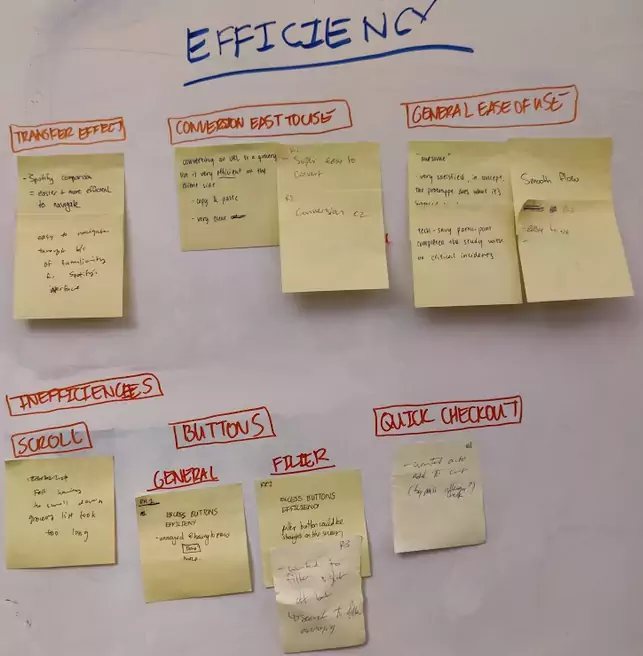 EFFICIENCY
TRANSFER EFFECT
- Spotify comparison
= easier + more efficient
to navigate
easy to navigate
through b/c
of familiarity
Spotify's
interface
CONVERSION EAST TO USE
converting an URL to a grocery
list is very efficient on the
client side
- copy & paste
- very clear
- Super easy to
convert
Conversion ez
GENERAL EASE OF USE
"awesome"
- very satisfied, in concept,
the prototype does what it's
tech-savvy participant
completed the study with
no critical incidents
Smooth flow
INEFFICIENCIES
SCROLL
Felt having
to scroll down
grocery list took
too long
BUTTONS
GENERAL
EXCESS BUTTONS
EFFICIENCY
- annoyed @ having to press
FILTER
EXCESS BUTTONS
EFFICIENCY
filter button could be
on the screen
R3
- wanted to
filter right
off bat
QUICK CHECKOUT
- wanted auto
add to cart